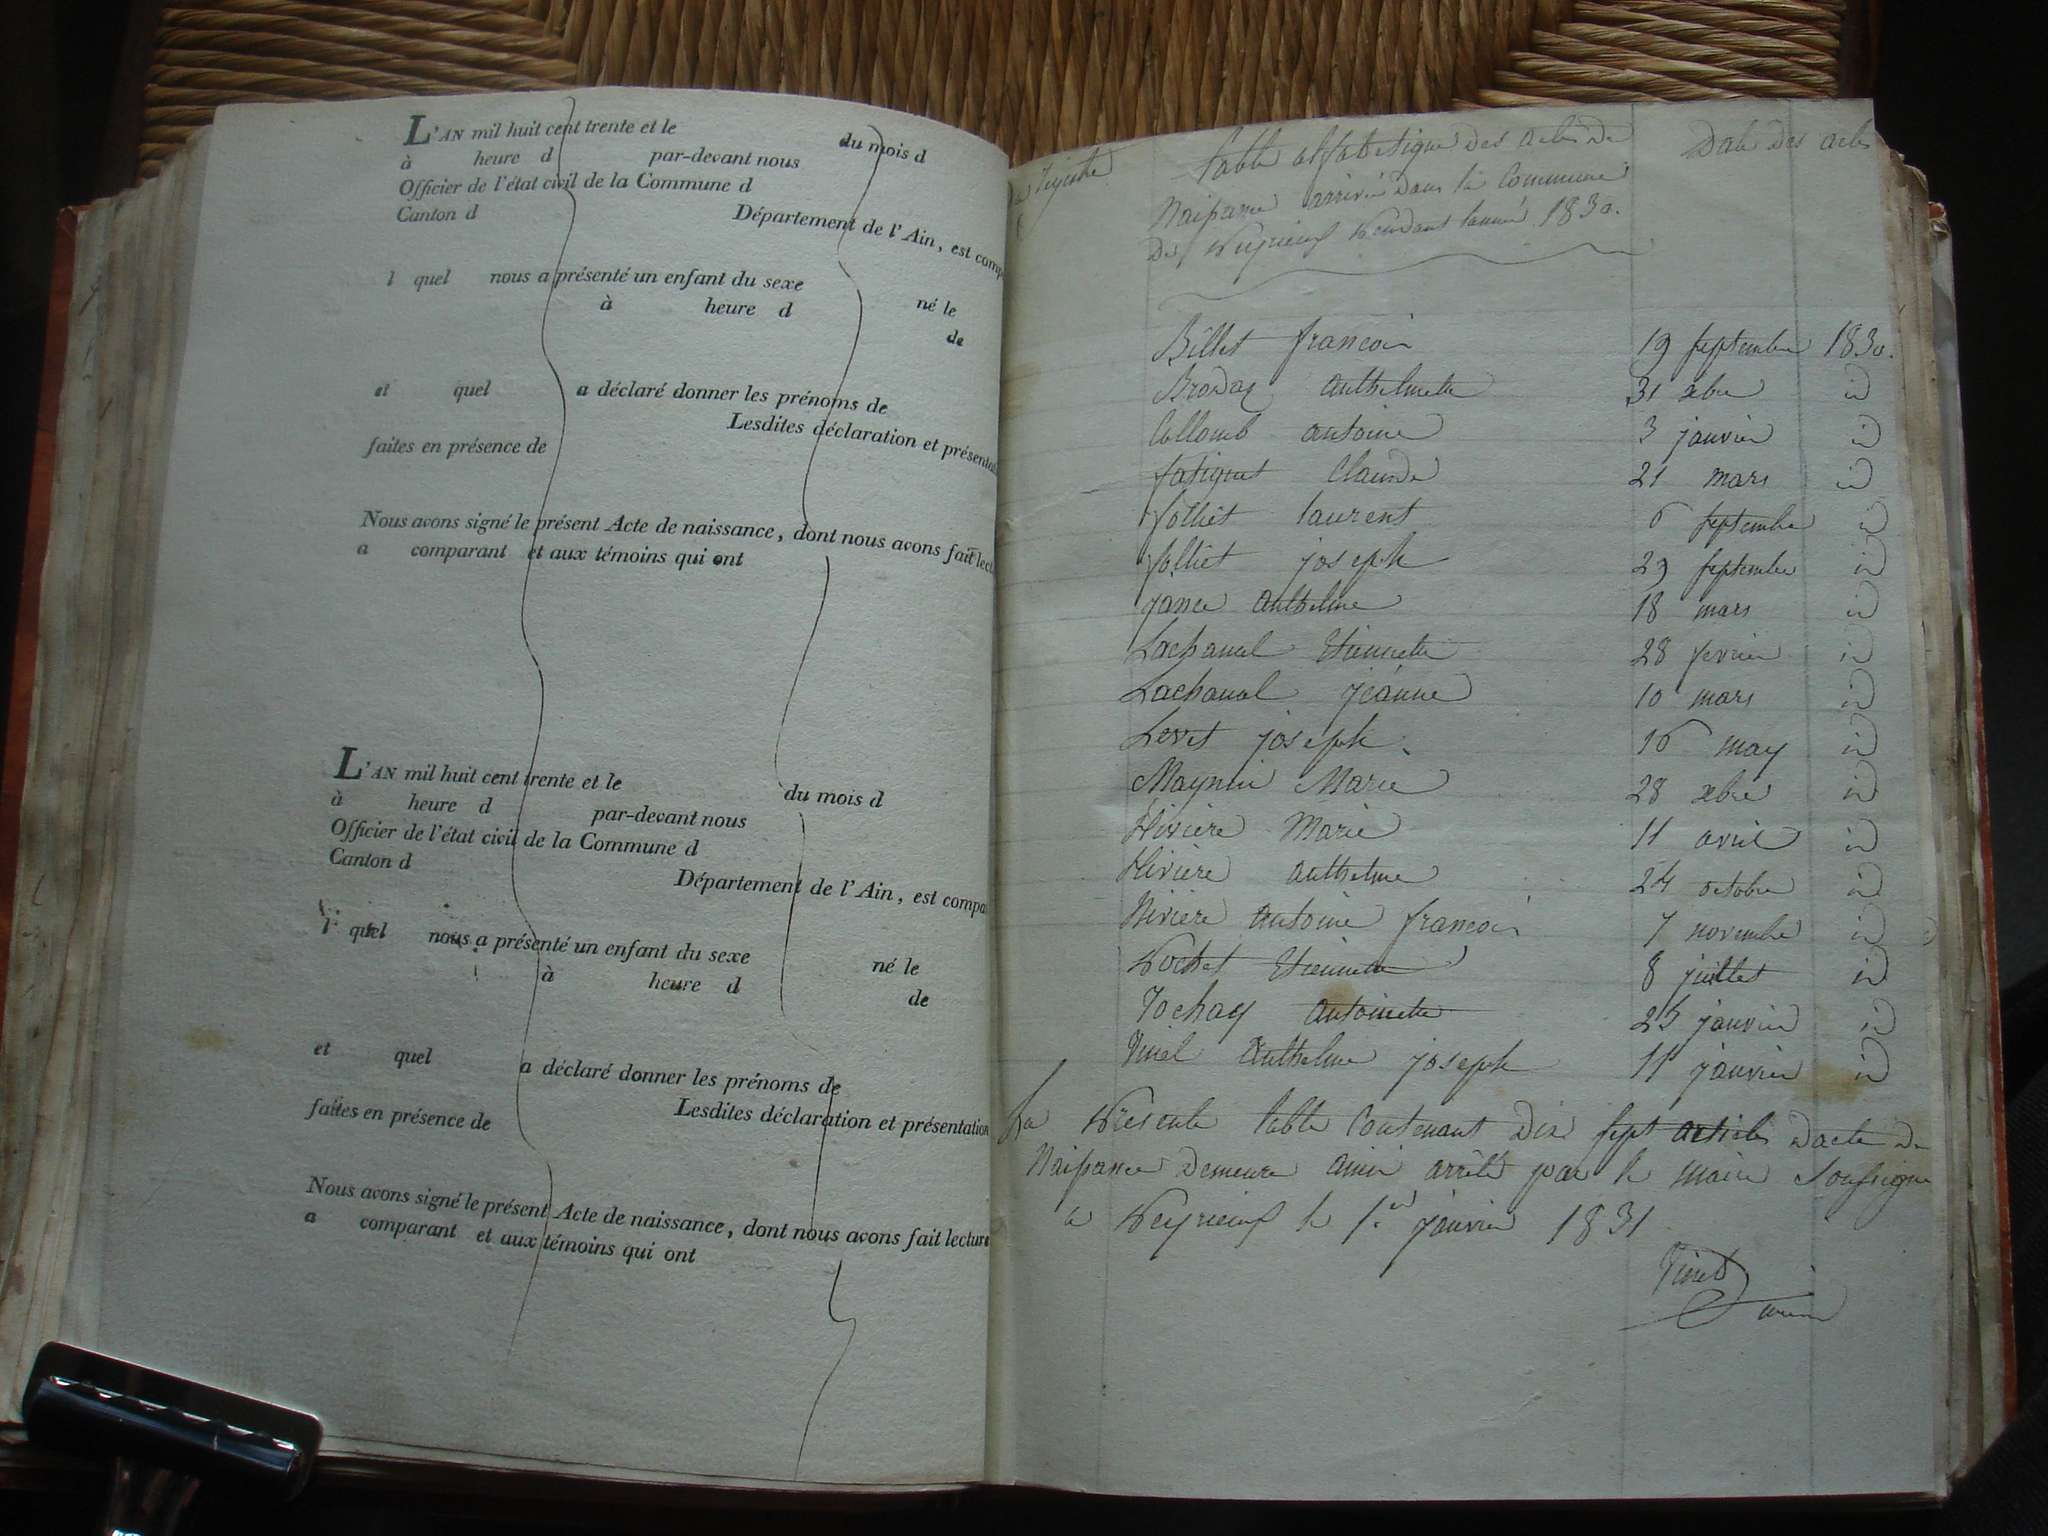 L'AN mil huit cent trente et le du mois d
à heure d par-devant nous
Officier de l'état civil de la Commune d
Canton d Département de l'Ain, est comp
l quel nous a présenté un enfant du sexe
né le
à heure d
de
et quel a déclaré donner les prénoms de
Lesdites déclaration et présentat
faites en présence de
Nous avons signé le présent Acte de naissance, dont nous avons fait lect
a comparant et aux témoins qui ont
L'AN mil huit cent trente et le du mois d
à heure d par-devant nous
Officier de l'état civil de la Commune d
Canton d
Département de l'Ain, est compa
l quel nous a présenté un enfant du sexe
né le
à heure d
de
et quel a déclaré donner les prénoms de
Lesdites déclaration et présentation
faites en présence de
Nous avons signé le présent Acte de naissance, dont nous avons fait lecture
a comparant et aux témoins qui ont
table alfabetique des actes de Date des actes
Naissance arrivée dans la Commune
De Peyrieux pendant l'année 1830.
Billet francois 19 septembre 1830.
Brodaz anthelmette 31 xbre id
Collomb antoine 3 janvier id
fatiguet Claude 21 mars id
folliet laurent 6 septembre id
folliet joseph 29 septembre id
jance anthelme 18 mars id
Lachanal Etiennette 28 fevrier id
Lachanal jeanne 10 mars id
Levet joseph 16 may id
Maynin Marie 28 xbre id
Riviere Marie 11 avril id
Riviere anthelme 24 octobre id
Riviere antoine francois 7 novembre id
Pochet Etiennette 8 juillet id
Tochay antoinette 25 janvier id
Vinel anthelme joseph 11 janvier id
La presente table contenant dix sept articles dacte de
Naissance demeure ainsi arrêté par le maire soussigne
a Peyrieux le 1.er janvier 1831